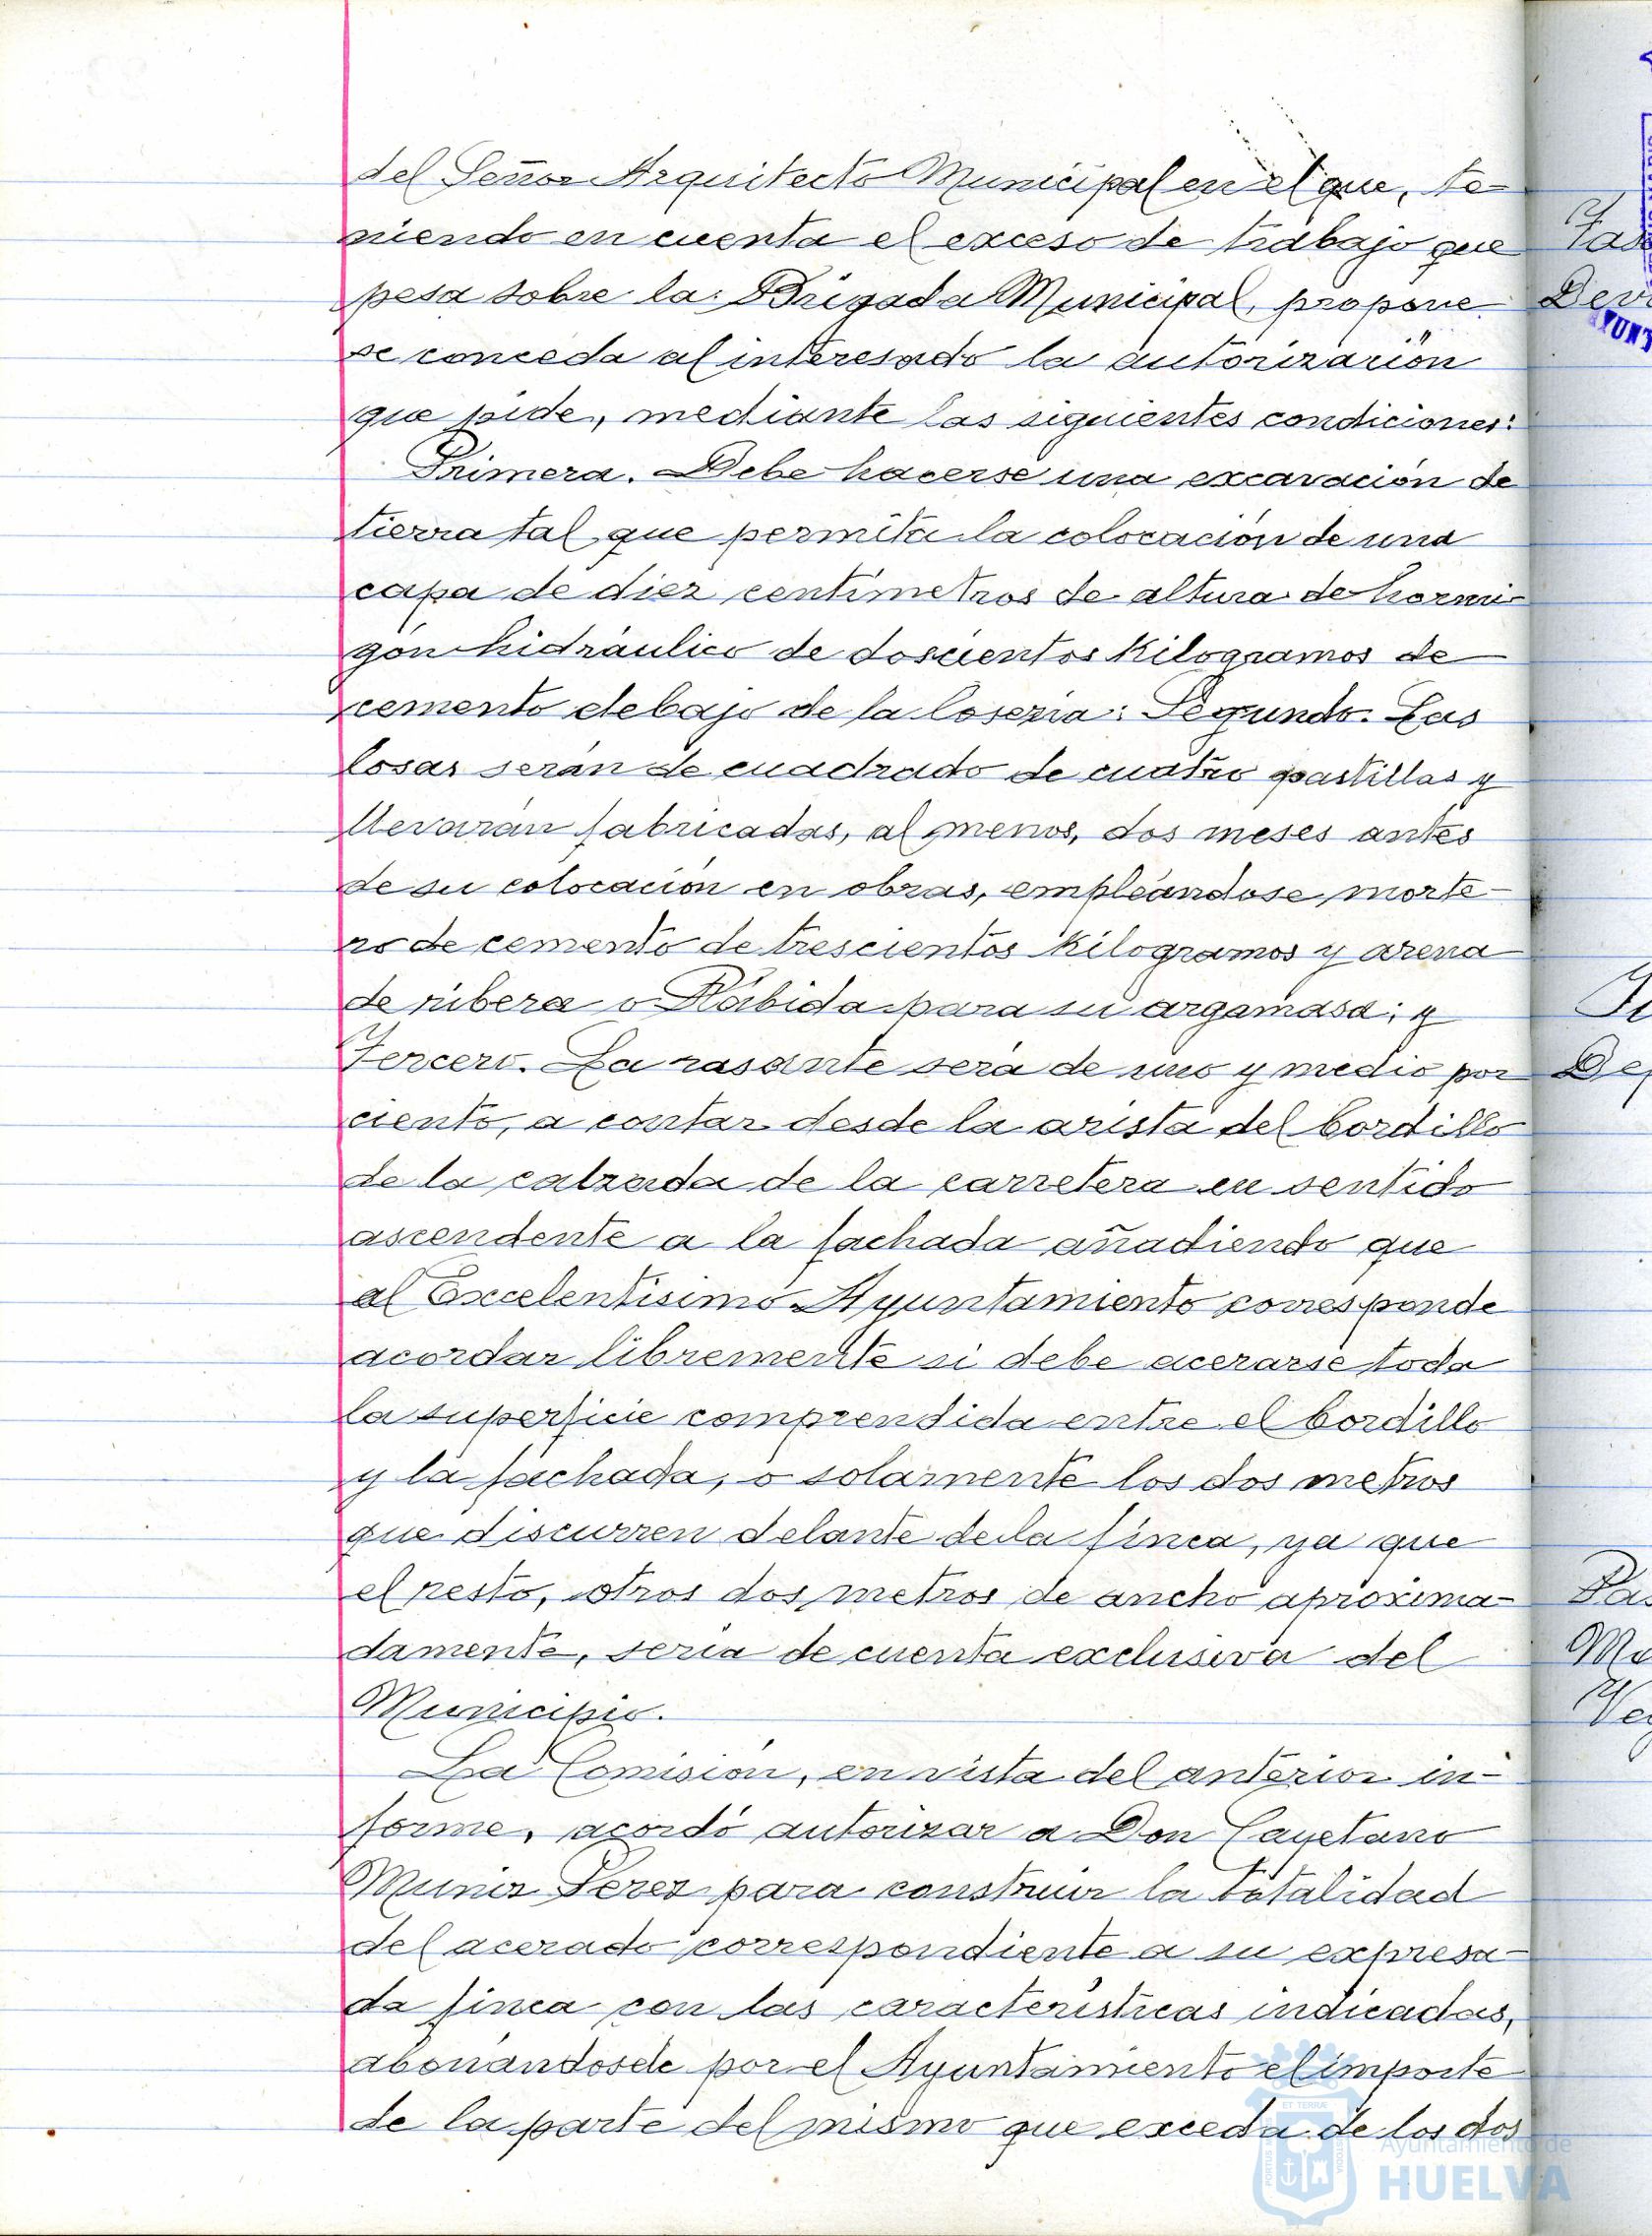 del Señor Arquitecto Municipal en el que, te-
niendo en cuenta el exceso de trabajo que
pesa sobre la Brigada Municipal, propone
se conceda al interesado la autorización
que pide, mediante las siguientes condiciones:
Primera. Debe hacerse una excavación de
tierra tal que permita la colocación de una
capa de diez centímetros de altura de hormi-
gón hidráulico de doscientos Kilogramos de
cemento debajo de la losería: Segundo. Las
losas serán de cuadrado de cuatro pastillas y
llevarán fabricadas, al menos, dos meses antes
de su colocación en obras, empleándose morte-
ro de cemento de trescientos Kilogramos y arena
de ribera o Rábida para su argamasa; y
Tercero. La rasante será de uno y medio por
ciento, a contar desde la arista del bordillo
de la calzada de la carretera en sentido
ascendente a la fachada añadiendo que
al Excelentísimo Ayuntamiento corresponde
acordar libremente si debe acerarse toda
la superficie comprendida entre el bordillo
y la fachada, o solamente los dos metros
que discurren delante de la finca, ya que
el resto, otros dos metros de ancho aproxima-
damente, sería de cuenta exclusiva del
Municipio.
La Comisión, en vista del anterior in-
forme, acordó autorizar a Don Cayetano
Muniz Perez para construir la totalidad
del acerado correspondiente a su expresa-
da finca con las características indicadas,
abonándosele por el Ayuntamiento el importe
de la parte del mismo que exceda de los dos
Ayuntamiento de
HUELVA